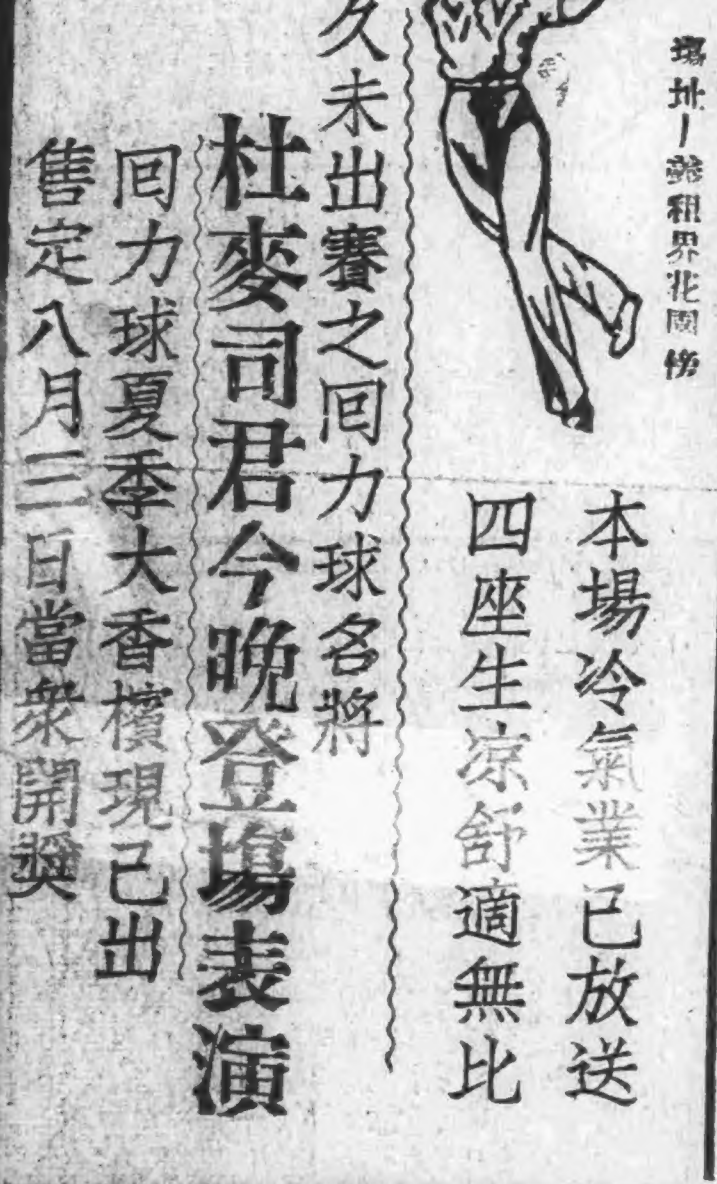 塲址丨義租界花園傍
本場冷氣業已放送
四座生凉舒適無比
久未出賽之囘力球名將
杜麥司君今晚登塲表演
囘力球夏季大香檳現已出
售定八月三日當衆開獎